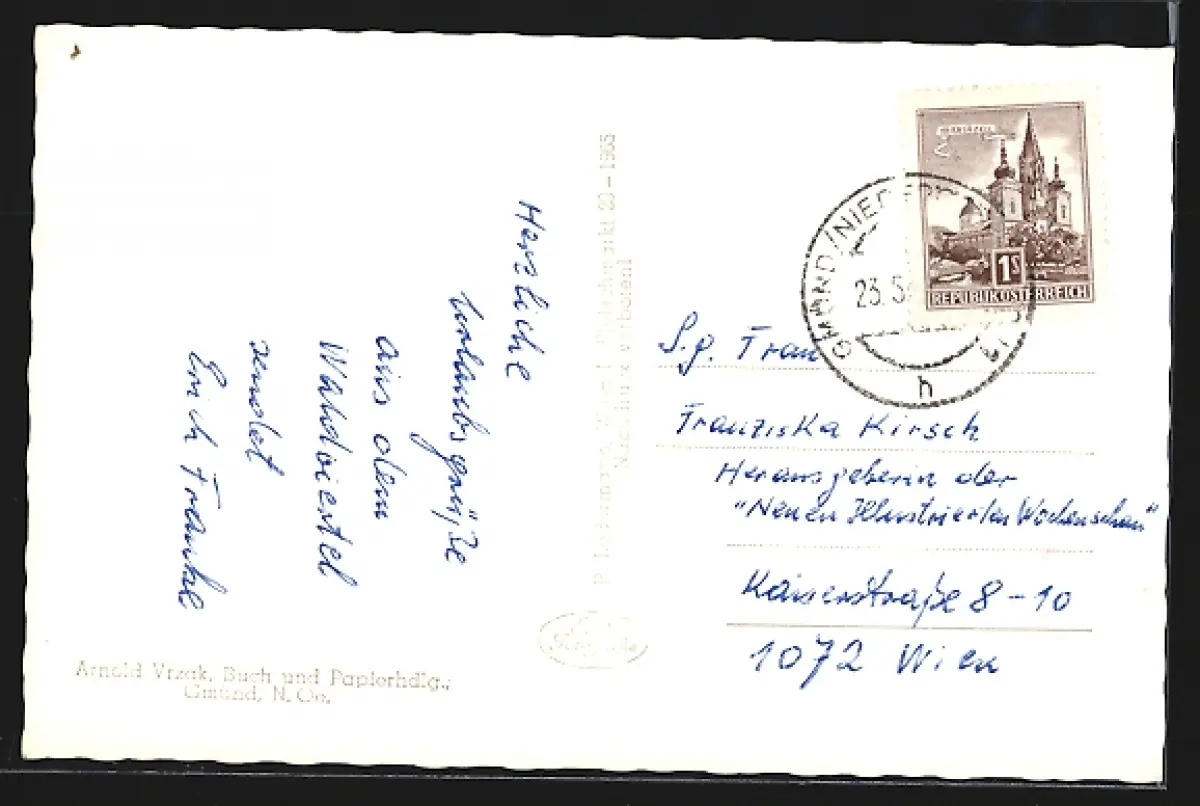 Herzliche
Urlaubsgrüße
aus dem
Waldviertel
sendet
Erich
Arnold Vrzak, Buch und Papierhdlg.,
Gmünd, N. Oe.
1965
Nachdruck verboten!
MARIAZELL
1S
REPUBLIK ÖSTERREICH
GMÜND
23.5.
h
S.g. Frau
Franziska Kirsch
Herausgeberin der
"Neuen Illustrierten Wochenschau"
Kaiserstraße 8-10
1072 Wien